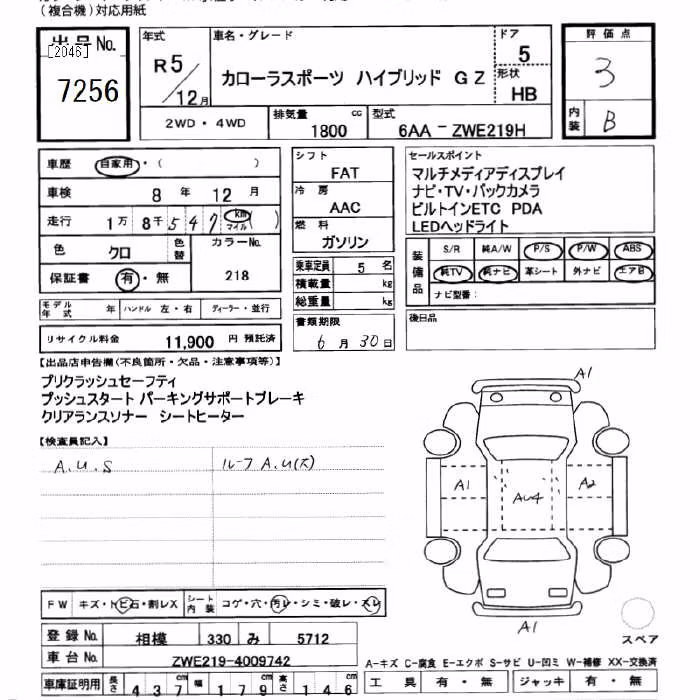 (複合機)対応用紙
出品No.
[2046]
7256
年式
R5/12月
車名・グレード
カローラスポーツ ハイブリッド GZ
ドア
5
形状
HB
評価点
3
内装
B
2WD・4WD
排気量
1800 cc
型式
6AA-ZWE219H
車歴 自家用・( )
車検 8年 12月
走行 1万 8千 5 4 7 km マイル ( )
色 クロ 色替
カラーNo.
218
保証書 有・無
モデル年式 年 ハンドル 左・右 ディーラー・並行
リサイクル料金 11,900 円 預託済
シフト
FAT
冷房
AAC
燃料
ガソリン
乗車定員 5 名
積載量 kg
総重量 kg
書類期限
6月30日
セールスポイント
マルチメディアディスプレイ
ナビ・TV・バックカメラ
ビルトインETC PDA
LEDヘッドライト
装備品
S/R 純A/W P/S P/W ABS
純TV 純ナビ 革シート 外ナビ エアB
ナビ型番:
後日品
【出品店申告欄(不良箇所・欠品・注意事項等)】
プリクラッシュセーフティ
プッシュスタート パーキングサポートブレーキ
クリアランスソナー シートヒーター
【検査員記入】
A.U.S
ルーフ A.U(大)
A1
A1
AU4
A2
A1
FW キズ・トビ石・割レX
シート内装 コゲ・穴・汚レ・シミ・破レ・スレ
登録No. 相模 330 み 5712
車台No. ZWE219-4009742
車庫証明用 長さ 437 幅 179 高さ 146
スペア
A-キズ C-腐食 E-エクボ S-サビ U-凹ミ W-補修 XX-交換済
工具 有・無 ジャッキ 有・無